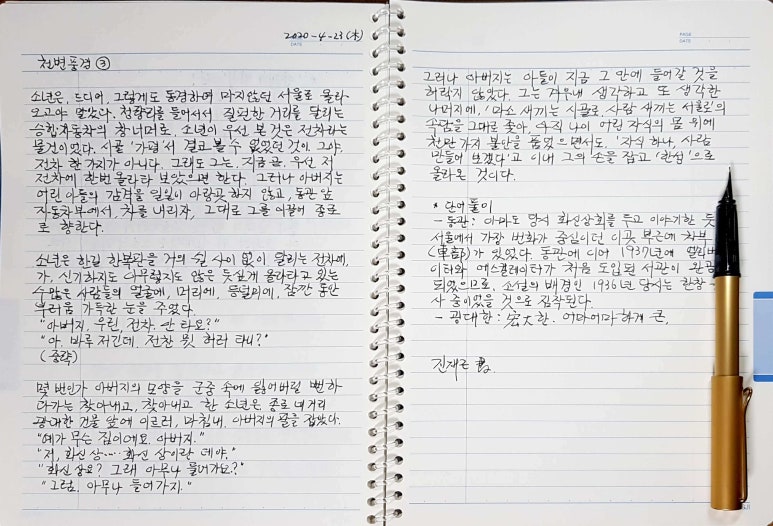 2020-4-23(木)
DATE
천변풍경 ③
소년은, 드디어, 그렇게도 동경하여 마지않던 서울로 올라
오고야 말았다. 청량리를 들어서서 질펀한 거리를 달리는
승합자동차의 창 너머로, 소년이 우선 본 것은 전차라는
물건이었다. 시골 '가평'서 결코 볼 수 없었던 것이 그야
전차 한 가지가 아니다. 그래도 그는, 지금 곧, 우선 저
전차에 한번 올라타 보았으면 한다. 그러나 아버지는
어린 아들의 감격을 일일이 아랑곳하지 않고, 동관 앞
자동차부에서, 차를 내리자, 그대로 그를 이끌어 종로
로 향한다.
소년은 한길 한복판을 거의 쉴 사이 없이 달리는 전차에,
가, 신기하지도 아무렇지도 않은 듯싶게 올라타고 있는
수많은 사람들의 얼굴에, 머리에, 등덜미에, 잠깐 동안
부러움 가득한 눈을 주었다.
"아버지. 우린, 전차, 안 타요?"
"아, 바루 저긴데, 전찬 뭣 허러 타니?"
(중략)
몇 번인가 아버지의 모양을 군중 속에 잃어버릴 뻔하
다가는 찾아내고, 찾아내고 한 소년은, 종로 네거리
광대한 건물 앞에 이르러, 마침내, 아버지의 팔을 잡았다.
"예가 무슨 집이에요. 아버지."
"저, 화신상……화신 상이란 데야."
"화신 상요? 그래 아무나 들어가요?"
"그럼, 아무나 들어가지."
PAGE
DATE
그러나 아버지는 아들이 지금 그 안에 들어갈 것을
허락지 않았다. 그는 겨우내 생각하고 또 생각한
나머지에, '마소 새끼는 시골로, 사람 새끼는 서울로'의
속담을 그대로 좇아, 아직 나이 어린 자식의 몸 위에
천만 가지 불안을 품었으면서도, '자식 하나, 사람
만들어 보겠다'고 이내 그의 손을 잡고 '한성'으로
올라온 것이다.
* 단어풀이
- 동관: 아마도 당시 화신상회를 두고 이야기한 듯
서울에서 가장 번화가 중심이던 이곳 부근에 차부
(車部)가 있었다. 동관에 이어 1937년에 엘리베
이타와 에스컬레이타가 처음 도입된 서관이 완공
되었으므로, 소설의 배경인 1936년 당시는 한창
사 중이었을 것으로 짐작된다.
- 광대한: 宏大한. 어마어마하게 큰.